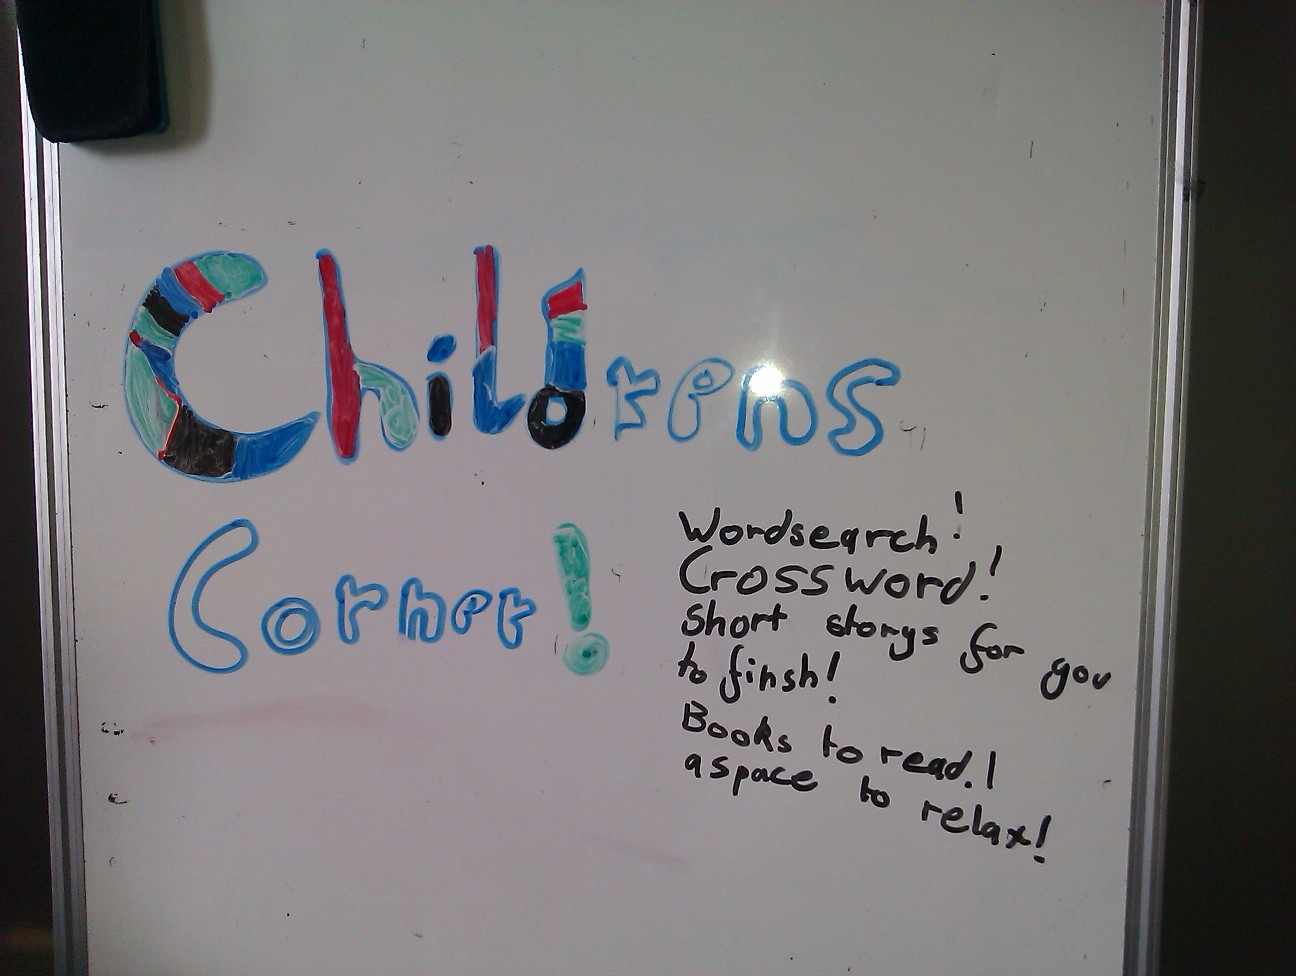 Childrens
Corner!
Wordsearch!
Crossword!
short storys for you
to finsh!
Books to read!
a space to relax!